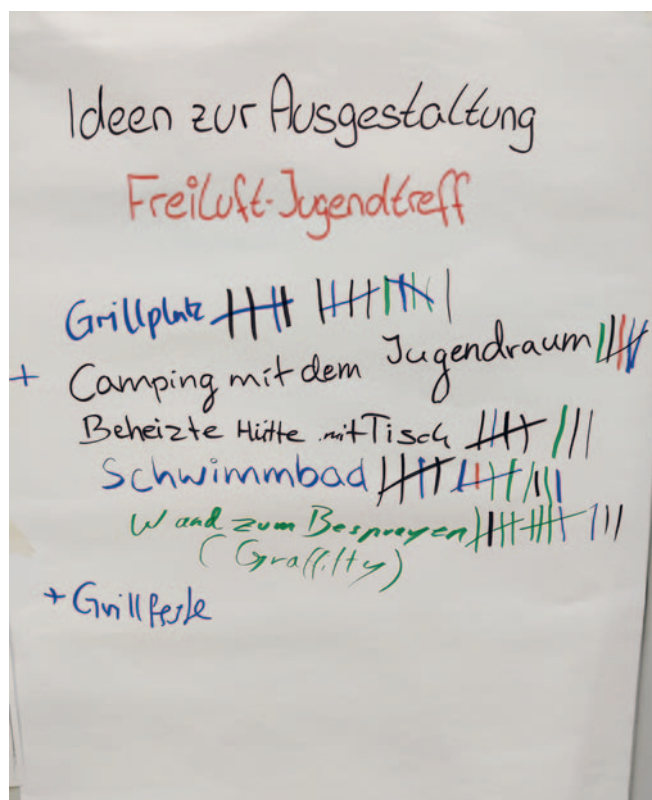 Ideen zur Ausgestaltung
Freiluft-Jugendtreff
Grillplatz
+ Camping mit dem Jugendraum
Beheizte Hütte mit Tisch
Schwimmbad
Wand zum Besprayen
(Graffilty)
+ Grillfeste